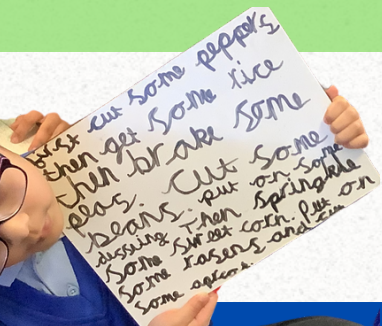 first cut some peppers
then get some rice
then brake some
peas. cut some
beans. put on some
dussing Then sprinkle
some sweet corn. Put on
some rasens and
some apricot